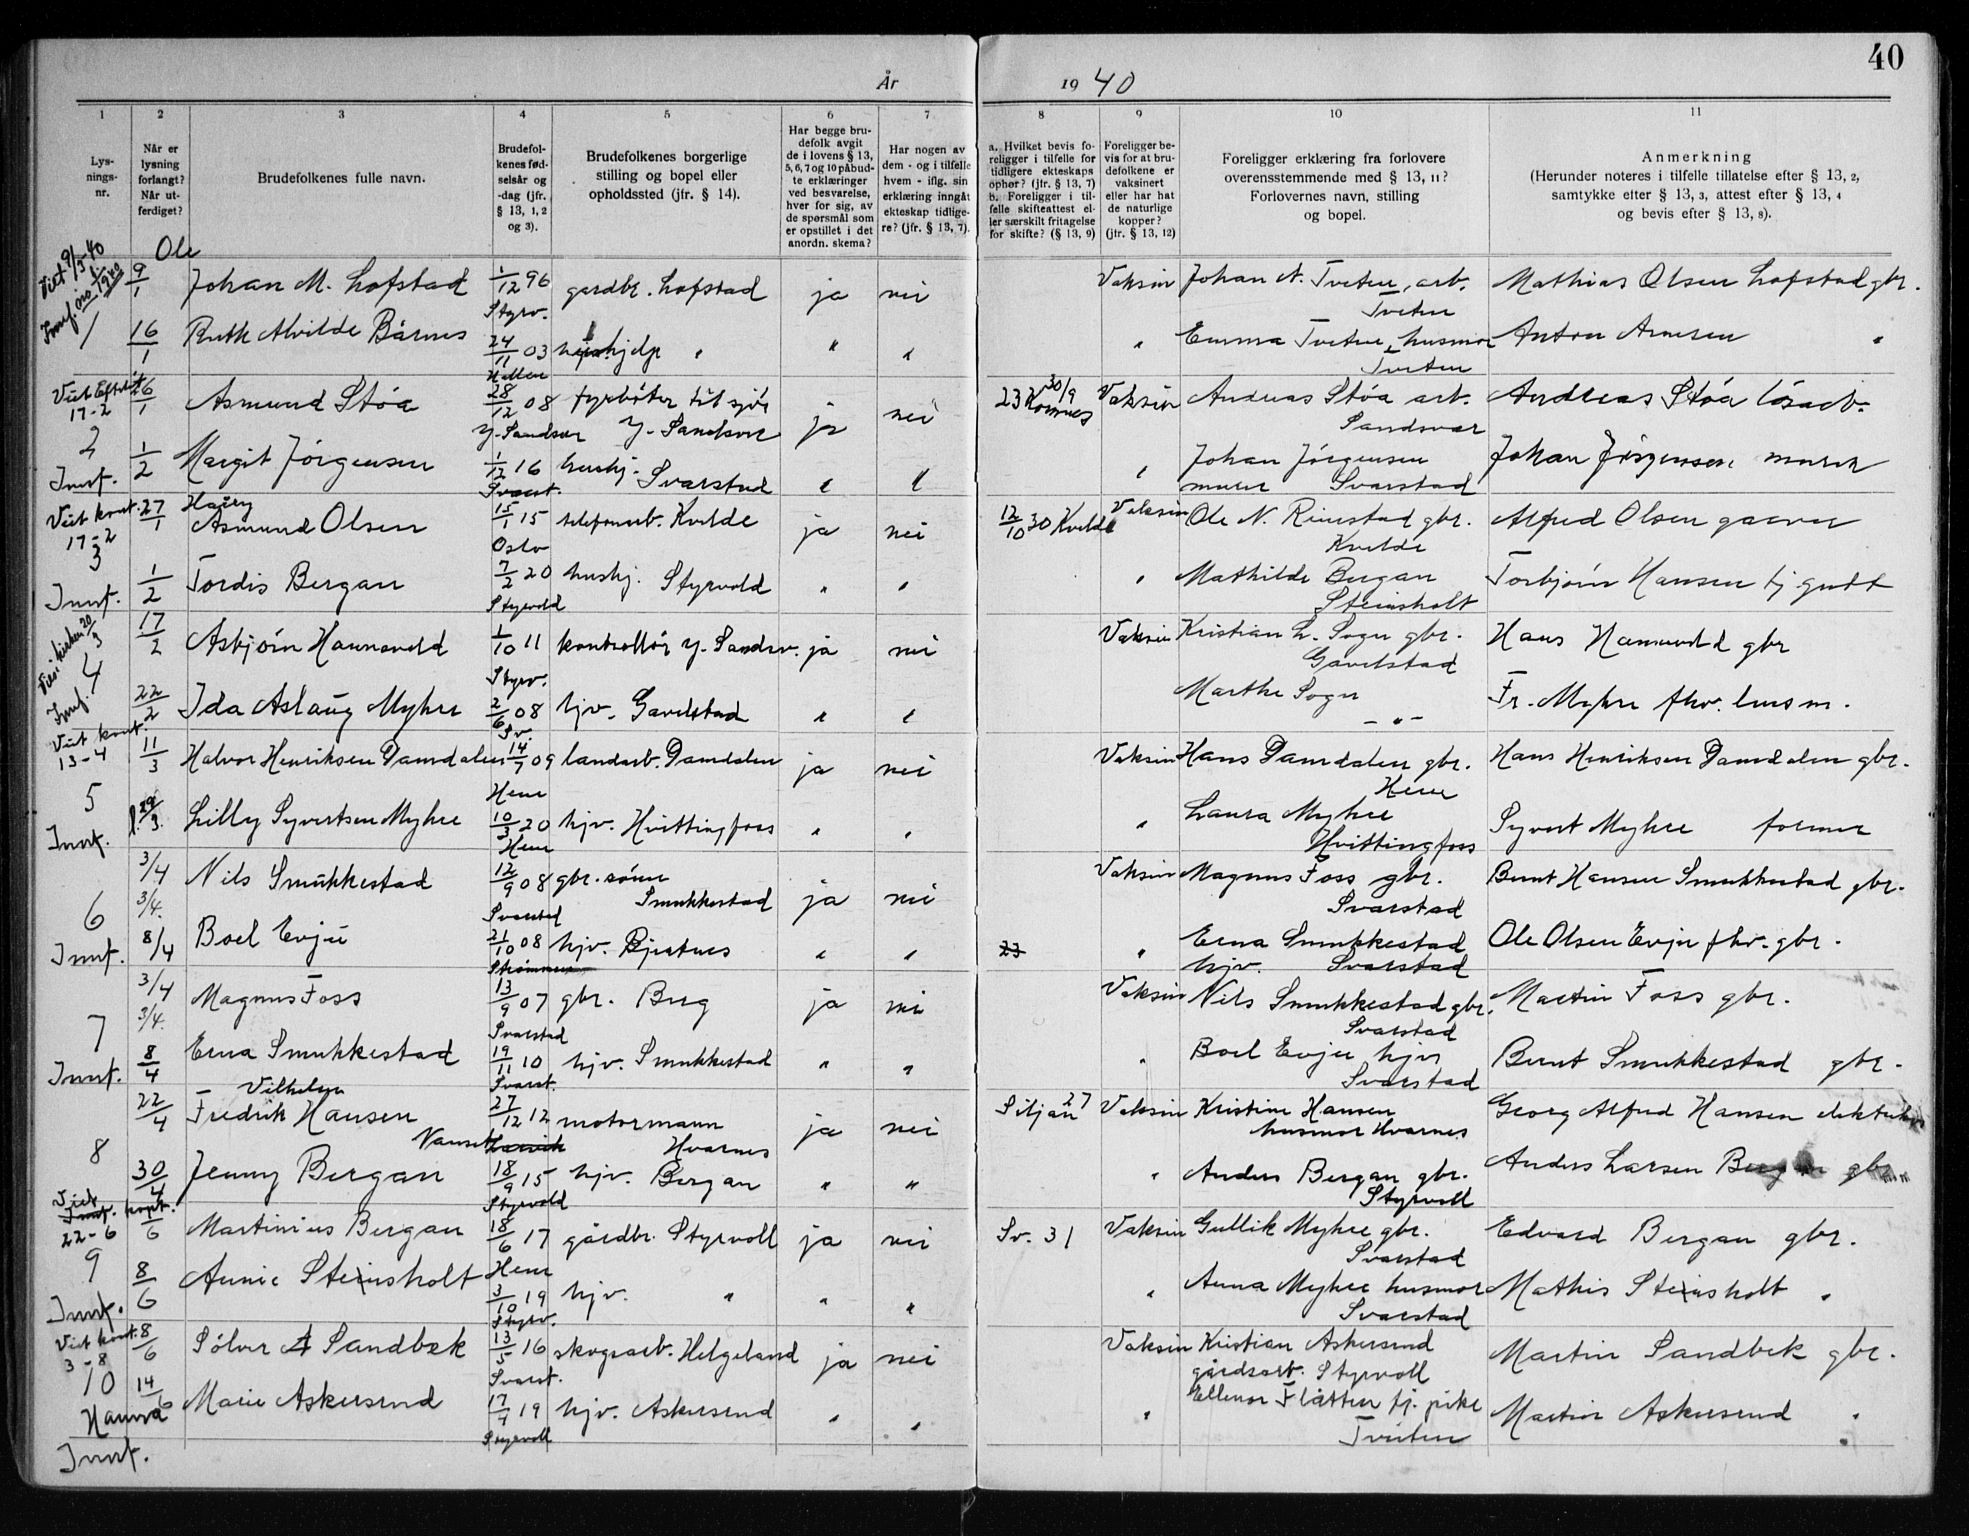 40
År 19 40
1 2 3 4 5 6 7 8 9 10 11
Lys-
nings-
nr.
Når er
lysning
forlangt?
Når ut-
ferdiget?
Brudefolkenes fulle navn.
Brudefol-
kenes fød-
selsår og
-dag (jfr.
§ 13, 1, 2
og 3).
Brudefolkenes borgerlige
stilling og bopel eller
opholdssted (jfr. § 14).
Har begge bru-
defolk avgit
de i lovens § 13,
5, 6, 7 og 10 påbud-
te erklæringer
ved besvarelse,
hver for sig, av
de spørsmål som
er opstillet i det
anordn. skema?
Har nogen av
dem - og i tilfelle
hvem - iflg. sin
erklæring inngåt
ekteskap tidlige-
re? (jfr. § 13, 7).
a. Hvilket bevis fo-
religger i tilfelle for
tidligere ekteskaps
ophør? (jfr. § 13, 7)
b. Foreligger i til-
felle skifteattest el-
ler særskilt fritagelse
for skifte? (§ 13, 9)
Foreligger be-
vis for at bru-
defolkene er
vaksinert
eller har hat
de naturlige
kopper?
(jfr. § 13, 12)
Foreligger erklæring fra forlovere
overensstemmende med § 13, 11?
Forlovernes navn, stilling
og bopel.
Anmerkning
(Herunder noteres i tilfelle tillatelse efter § 13, 2,
samtykke efter § 13, 3, attest efter § 13, 4
og bevis efter § 13, 8).
Ole
1 9/1 Johan M. Lofstad 1/12 96 gardbr. Lofstad ja nei Vaksin Johan N. Tveten, arb. Mathias Olsen Lofstad gbr.
Styrv. Tveten
16/1 Ruth Alvilde Bårnes 24/11 03 hushjelp " " " " Emma Tveten, husmor Anton Arnesen "
Tveten
17-2 26/1 Asmund Stóa 28/12 08 fyrbøter til sjøs ja nei 23 Komnes 30/9 Vaksin Andreas Stóa arb. Andreas Stóa løsarb.
Y. Sandsvær Y. Sandsvær Sandsvær
2 1/2 Margit Jörgensen 1/12 16 hushj. Svarstad " " " Johan Jörgensen Johan Jörgensen murer
Innf. Svarst. murer Svarstad
Viet kont. 27/1 Harry
17-2 Asmund Olsen 15/1 15 telefonarb. Kvelde ja nei 12/10 30 Kvelde Vaksin Ole N. Rimestad gbr. Alfred Olsen garver
3 Oslo Kvelde
1/2 Tordis Bergan 7/2 20 hushj. Styrvold " " " Mathilde Bergan Torbjørn Hansen tj. gutt
Innf. Styrvold Steinsholt
4 17/2 Asbjörn Hounsvold 1/10 11 kontrollör Y. Sandsv. ja nei Vaksin Kristian L. Sogn gbr. Hans gbr
Innf. Styrv. Gavelstad
22/2 Ida Aslaug Myhre 2/6 08 hjv. Gavelstad " " Marthe Sogn Fr. Myhre fhv. lensm.
Sv. - " -
Viet kont. 11/3 Halvor Henriksen Damdalen 14/7 09 landarb. Damdalen ja nei Vaksin Hans Damdalen gbr. Hans Henriksen Damdalen gbr.
13-4 Hem Hem
5 29/3 Lilly Syvertsen Myhre 10/3 20 hjv. Hvittingfoss " " " Laura Myhre Syvert Myhre former
Innf. Hem Hvittingfoss
3/4 Nils Smukkestad 12/9 08 gbr. sönn ja nei Vaksin Magnus Foss gbr. Bernt Hansen Smukkestad gbr.
6 3/4. Svarstad Smukkestad Svarstad
Innf. 8/4 Boel Evju 21/10 08 hjv. Bjertnes " " 23 " Erna Smukkestad Ole Olsen Evju fhv. gbr.
Strømmen hjv. Svarstad
3/4 Magnus Foss 13/9 07 gbr. Berg ja nei Vaksin Nils Smukkestad gbr. Martin Foss gbr.
7 3/4. Svarstad Svarstad
Innf. 8/4 Erna Smukkestad 19/11 10 hjv. Smukkestad " " " Boel Evju hjv Bernt Smukkestad gbr.
Svarst. Svarstad
Vilhelm
22/4 Fredrik Hansen 27/12 12 motormann ja nei Siljan 27 Vaksin Kristine Hansen Georg Alfred Hansen
8 Larvik Hvarnes husmor Hvarnes
30/4 Jenny Bergan 18/9 15 hjv. Bergan " " " Anders Bergan gbr. Anders Larsen Bergan gbr
Styrvold Styrvoll
Viet
22-6 Martinius Bergan 18/6 17 gårdbr. Styrvoll ja nei Sv. 31 Vaksin Gullik Myhre gbr. Edvard Bergan gbr.
9 Hem Svarstad
Innf. 8/6 Annie Steinsholt 3/10 19 hjv. " " " " Anna Myhre husmor Mathis Steinsholt "
Styrv. Svarstad
Viet kont. 8/6 Sólver A Sandbæk 13/5 16 skogsarb. Helgeland ja nei Vaksin Kristian Askersrud Martin Sandbek gbr.
3-8 Svarst. gårdsarb. Styrvoll
10 14/6 Marie Askersrud 17/4 19 hjv. Askersrud " " " Ellenor Flåtten tj. pike Martin Askersrud "
Hanna Styrvoll Tveiten
Innf.